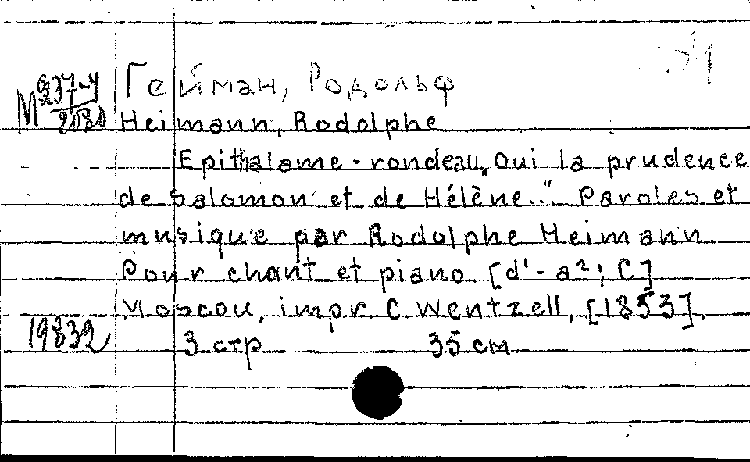 Гейман, Родольф
М 237-4
2180
Heimann, Rodolphe
Epithalame-rondeau „Oui la prudence
de Salomon et de Hélène..." Paroles et
musique par Rodolphe Heimann
Pour chant et piano [d'-a²; C]
Moscou, impr. C. Wentzell, [1853].
19832
3 стр 35 см